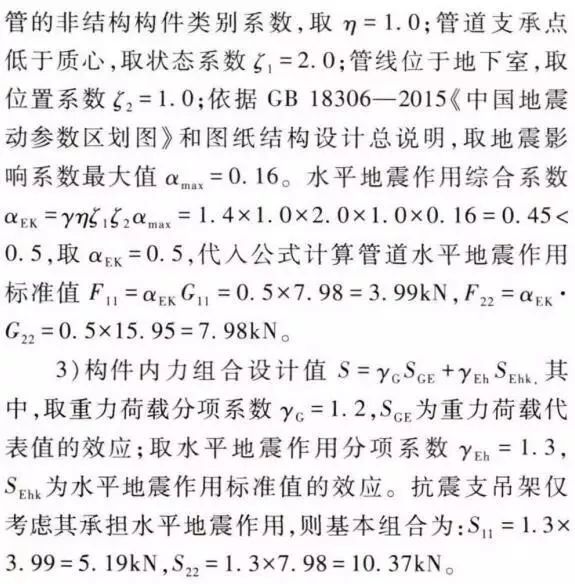 管的非结构构件类别系数,取 η = 1.0;管道支承点
低于质心,取状态系数 ζ₁ = 2.0;管线位于地下室,取
位置系数 ζ₂ = 1.0;依据 GB 18306—2015《中国地震
动参数区划图》和图纸结构设计总说明,取地震影
响系数最大值 αmax = 0.16。水平地震作用综合系数
αEK = γηζ₁ζ₂αmax = 1.4×1.0×2.0×1.0×0.16 = 0.45<
0.5,取 αEK = 0.5,代入公式计算管道水平地震作用
标准值 F₁₁ = αEK G₁₁ = 0.5×7.98 = 3.99kN,F₂₂ = αEK ·
G₂₂ = 0.5×15.95 = 7.98kN。
3)构件内力组合设计值 S = γG SGE + γEh SEhk. 其
中,取重力荷载分项系数 γG = 1.2,SGE为重力荷载代
表值的效应;取水平地震作用分项系数 γEh = 1.3,
SEhk为水平地震作用标准值的效应。抗震支吊架仅
考虑其承担水平地震作用,则基本组合为:S₁₁ = 1.3×
3.99 = 5.19kN,S₂₂ = 1.3×7.98 = 10.37kN。